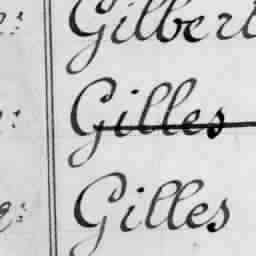 Gilbert
Gilles
Gilles